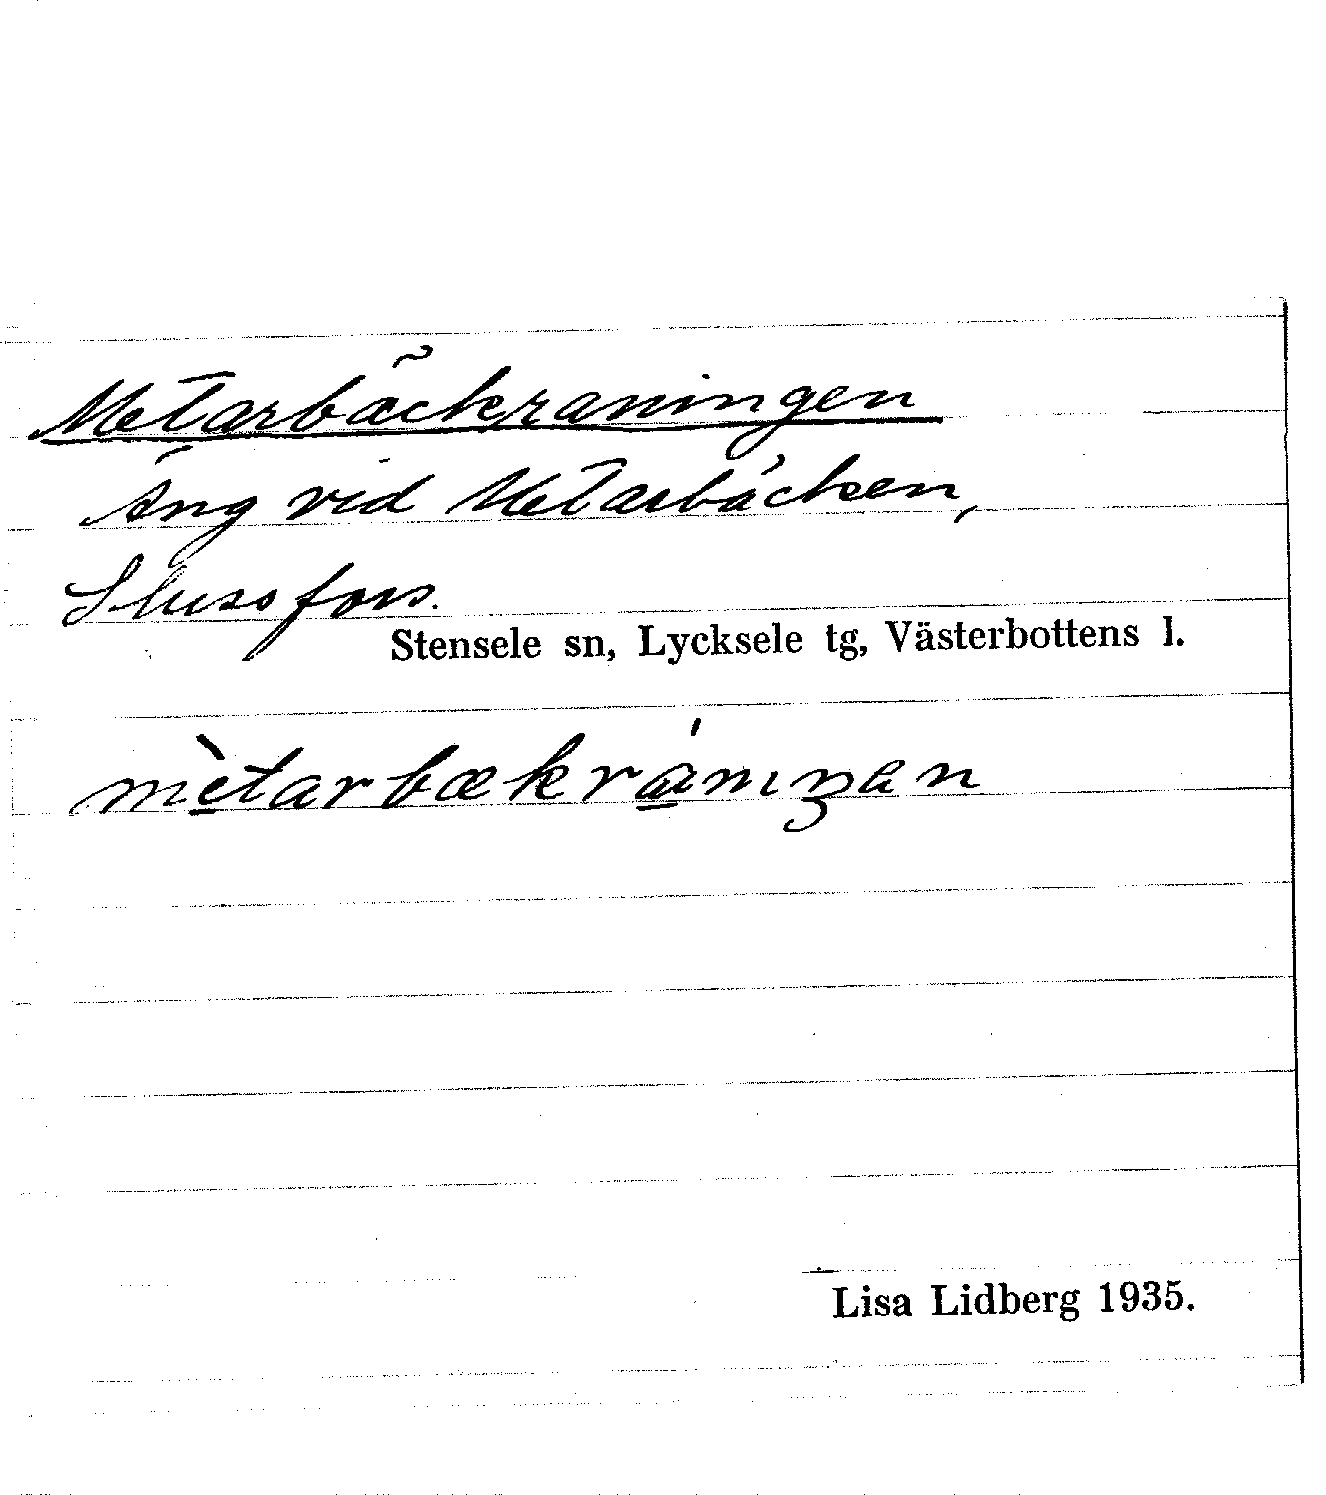 Metarbäckraningen
Äng vid Metarbäcken,
Slussfors.
Stensele sn, Lycksele tg, Västerbottens l.
mètarbækráníŋen
Lisa Lidberg 1935.